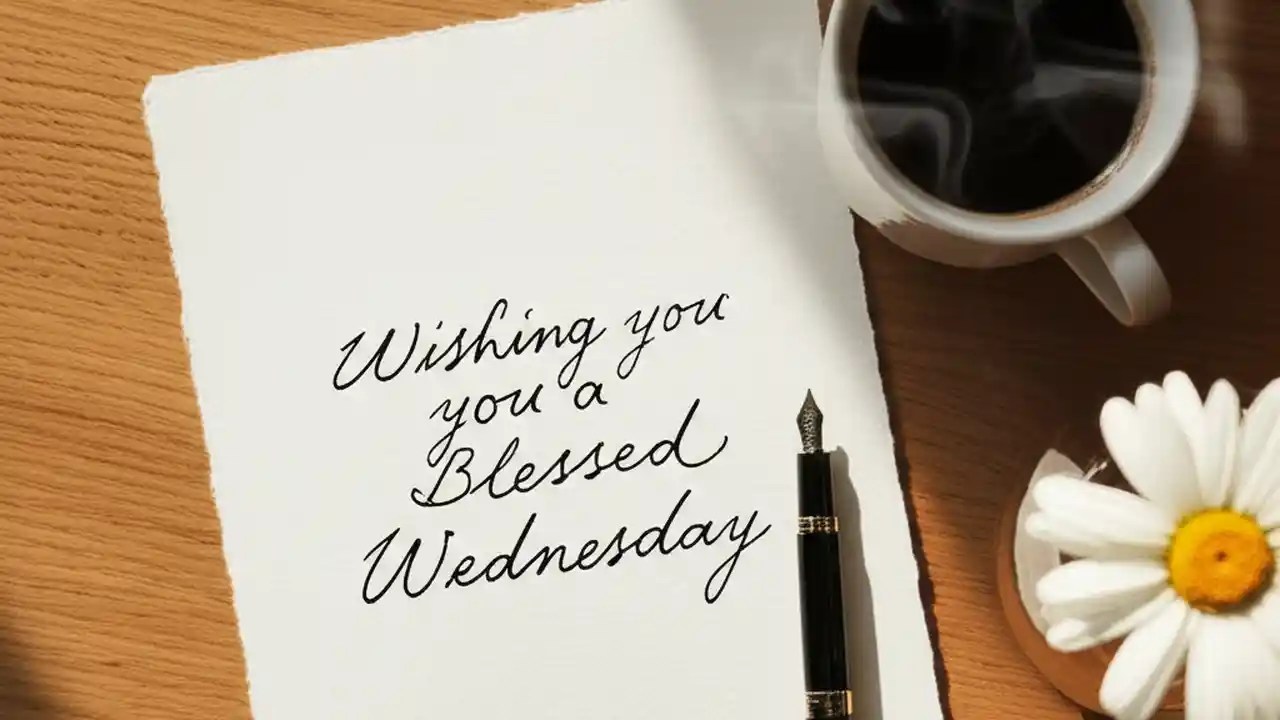 Wishing you
you a
Blessed
Wednesday